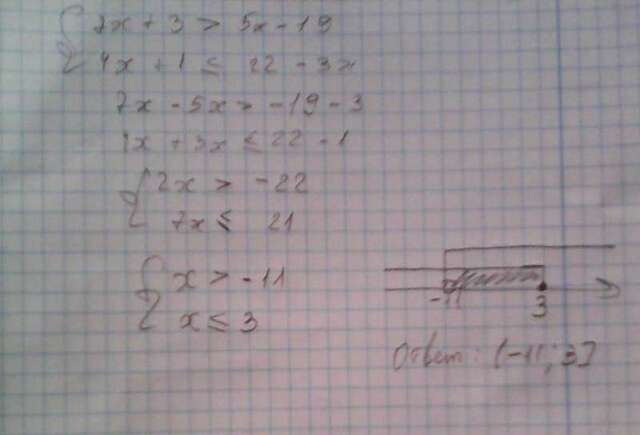 7x + 3 > 5x - 19
4x + 1 ≤ 22 - 3x
7x - 5x > -19 - 3
4x + 3x ≤ 22 - 1
2x > -22
7x ≤ 21
x > -11
x ≤ 3
-11 3
Ответ: (-11; 3]